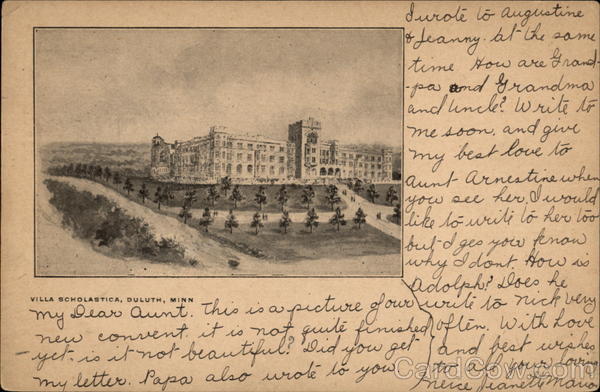 VILLA SCHOLASTICA, DULUTH, MINN
My Dear Aunt. This is a picture of our
new convent, it is not quite finished
yet - is it not beautiful? Did you get
my letter. Papa also wrote to you
I wrote to Augustine
& Jeanny. at the same
time How are Grand-
pa and Grandma
and Uncle? Write to
me soon, and give
my best love to
Aunt Arnestine when
you see her, I would
like to write to her too
but I ges you know
why I dont How is
Adolph? Does he
write to Nick very
often. With Love
and best wishes
to all your loving
Niece Jeanett
CardCow.com